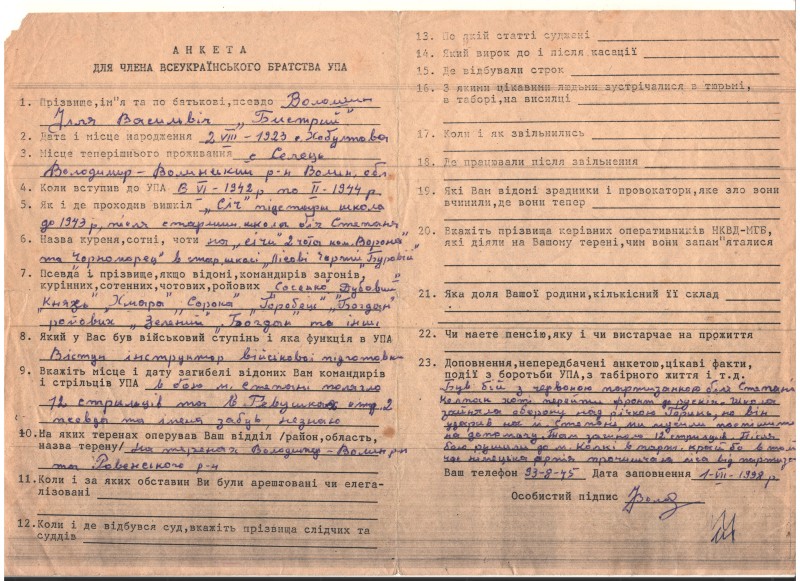 АНКЕТА
ДЛЯ ЧЛЕНА ВСЕУКРАЇНСЬКОГО БРАТСТВА УПА
1. Прізвище,ім"я та по батькові,псевдо Волошин
Ілля Васильвіч „Бистрий"
2. Дата і місце народження 2 VIII - 1923 с. Хобултова
3. Місце теперішнього проживання с Селець
Володимир-Волинський р-н Волин. обл
4. Коли вступив до УПА В VI - 1942 р по II - 1944 р
5. Як і де проходив вишкіл „Січ" підстарш школа
до 1943 р, після старшин. школа біля Степаня
6. Назва куреня,сотні, чоти на „січи" 2 чота ком. Ворона
та „Чорноморец" в стар. шкалі „Лісові Чорти"
7. Псевда і прізвище,якщо відомі,командирів загонів,
курінних,сотенних,чотових,ройових Сосенко
„Князь" „Хмара" „Сорока" „Горобець" „Богдан"
ройових „Зелений" „Богдан" та інші
8. Який у Вас був військовий ступінь і яка функція в УПА
Вістун інструктор військової підготовки
9. Вкажіть місце і дату загибелі відомих Вам командирів
і стрільців УПА в бою м. Степані полягло
12 стрильців та
псевда та імена забув, незнаю
10. На яких теренах оперував Ваш відділ /район,область,
назва терену/ на теренах Володимир-Волин. р-н
та Ровенського р-н
11. Коли і за яких обставин Ви були арештовані чи елега-
лізовані
12. Коли і де відбувся суд,вкажіть прізвища слідчих та
суддів
13. По якій статті суджені
14. Який вирок до і після касації
15. Де відбували строк
16. З якими цікавими людьми зустрічалися в тюрьмі,
в таборі,на висилці
17. Коли і як звільнились
18. Де працювали після звільнення
19. Які Вам відомі зрадники і провокатори,яке зло вони
вчинили,де вони тепер
20. Вкажіть прізвища керівних оперативників НКВД-МГБ,
які діяли на Вашому терені,чим вони запам"яталися
21. Яка доля Вашої родини,кількісний її склад
22. Чи маєте пенсію,яку і чи вистарчає на прожиття
23. Доповнення,непередбачені анкетою,цікаві факти,
події з боротьби УПА,з табірного життя і т.д.
Був бій з червоною партизанкою біля Степаня
Колпак хотів перейти фронт до руских. Школа
зайняла оборону над річкою Горинь, но він
ударив на м. Степань, ми мусили поспішити
на допомогу. Там загинуло 12 стрильців. Після
бою рушили до м Колкі в парт. край бо в той
час німецька армія прочищала ліса від партизан
Ваш телефон 93-8-45 Дата заповнення 1-VII-1998 р
Особистий підпис